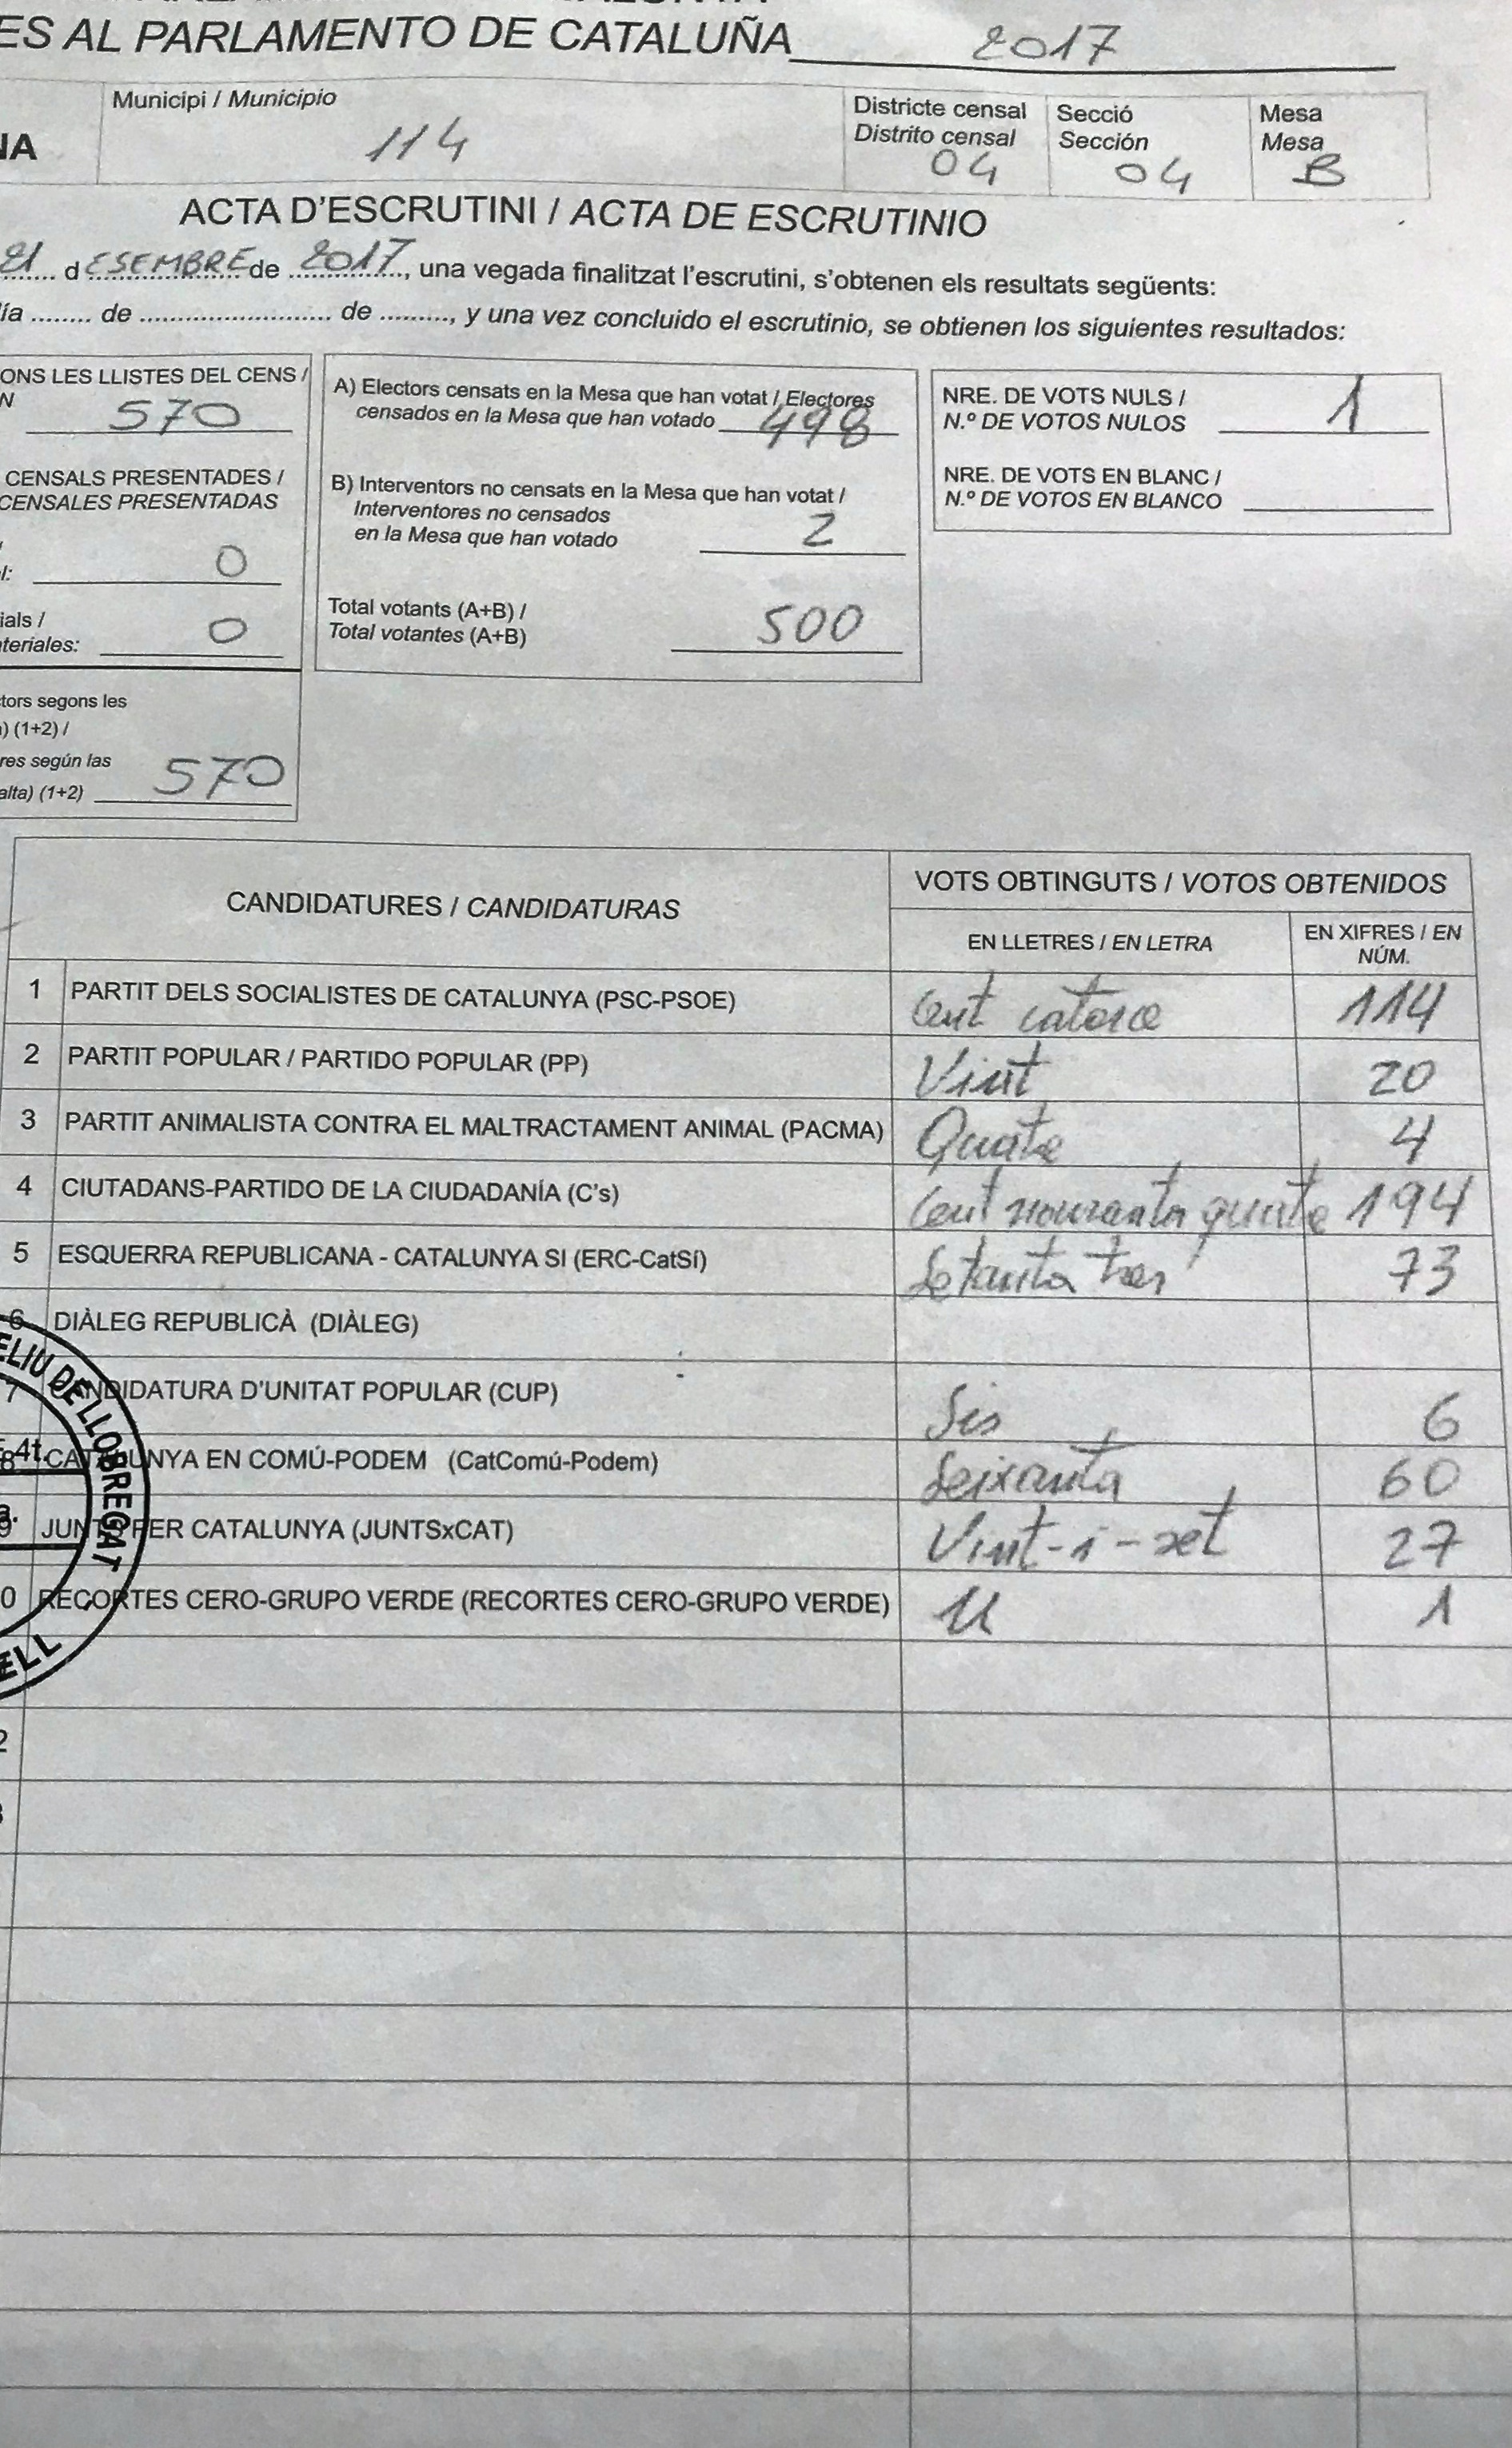 ES AL PARLAMENTO DE CATALUÑA 2017
NA
Municipi / Municipio
114
Districte censal
Distrito censal
04
Secció
Sección
04
Mesa
Mesa
B
ACTA D'ESCRUTINI / ACTA DE ESCRUTINIO
21 d ESEMBRE de 2017, una vegada finalitzat l'escrutini, s'obtenen els resultats següents:
ía ........ de ............................ de .........., y una vez concluido el escrutinio, se obtienen los siguientes resultados:
ONS LES LLISTES DEL CENS /
N
570
CENSALS PRESENTADES /
CENSALES PRESENTADAS
/
l: 0
ials /
teriales: 0
tors segons les
) (1+2) /
res según las
alta) (1+2) 570
A) Electors censats en la Mesa que han votat / Electores
censados en la Mesa que han votado 498
B) Interventors no censats en la Mesa que han votat /
Interventores no censados
en la Mesa que han votado 2
Total votants (A+B) /
Total votantes (A+B) 500
NRE. DE VOTS NULS /
N.º DE VOTOS NULOS 1
NRE. DE VOTS EN BLANC /
N.º DE VOTOS EN BLANCO
CANDIDATURES / CANDIDATURAS
VOTS OBTINGUTS / VOTOS OBTENIDOS
EN LLETRES / EN LETRA
EN XIFRES / EN
NÚM.
1 PARTIT DELS SOCIALISTES DE CATALUNYA (PSC-PSOE) Cent catorce 114
2 PARTIT POPULAR / PARTIDO POPULAR (PP) Vint 20
3 PARTIT ANIMALISTA CONTRA EL MALTRACTAMENT ANIMAL (PACMA) Quatre 4
4 CIUTADANS-PARTIDO DE LA CIUDADANÍA (C's) Cent nouranta quatre 194
5 ESQUERRA REPUBLICANA - CATALUNYA SI (ERC-CatSí) Setanta tres 73
6 DIÀLEG REPUBLICÀ (DIÀLEG)
7 CANDIDATURA D'UNITAT POPULAR (CUP) Sis 6
8 CATALUNYA EN COMÚ-PODEM (CatComú-Podem) Seixanta 60
9 JUNTS PER CATALUNYA (JUNTSxCAT) Vint-i-set 27
0 RECORTES CERO-GRUPO VERDE (RECORTES CERO-GRUPO VERDE) U 1
2
3
ELIU DE LLOBREGAT
4t.
a.
ELL